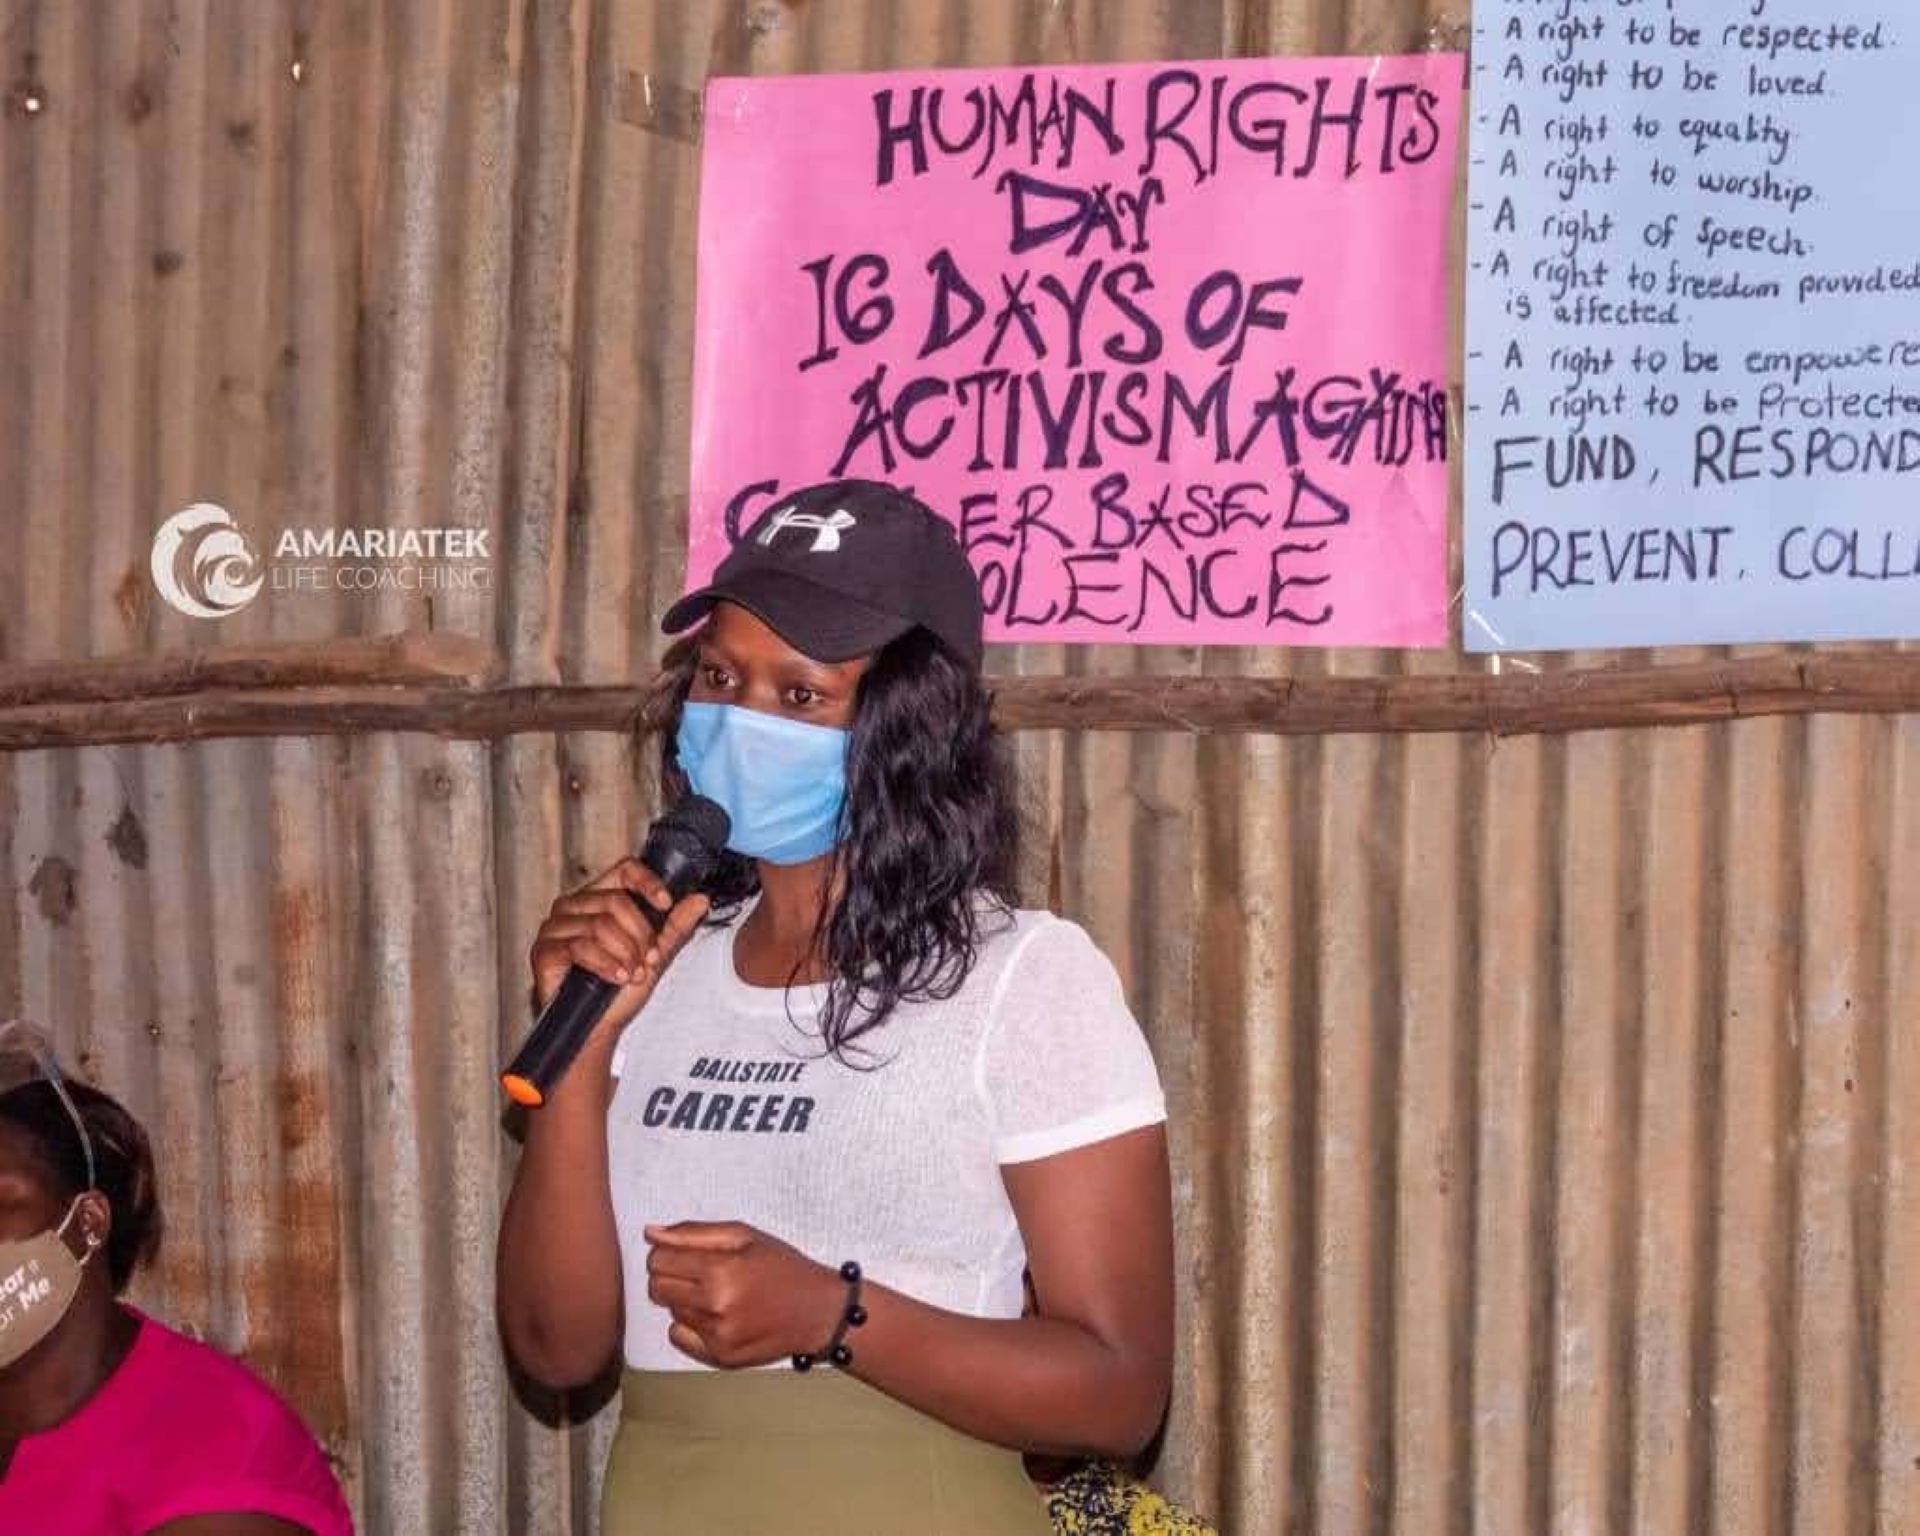 HUMAN RIGHTS
DAY
16 DAYS OF
ACTIVISM AGAINS
ER BASED
OLENCE
- A right to be respected.
- A right to be loved.
- A right to equality
- A right to worship.
- A right of speech.
- A right to freedom provided
is affected.
- A right to be empowere
- A right to be Protecte
FUND, RESPOND
PREVENT, COLL
AMARIATEK
LIFE COACHING
BALLSTATE
CAREER
ear
or Me